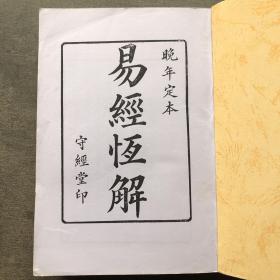 晚年定本
易經恆解
守經堂印